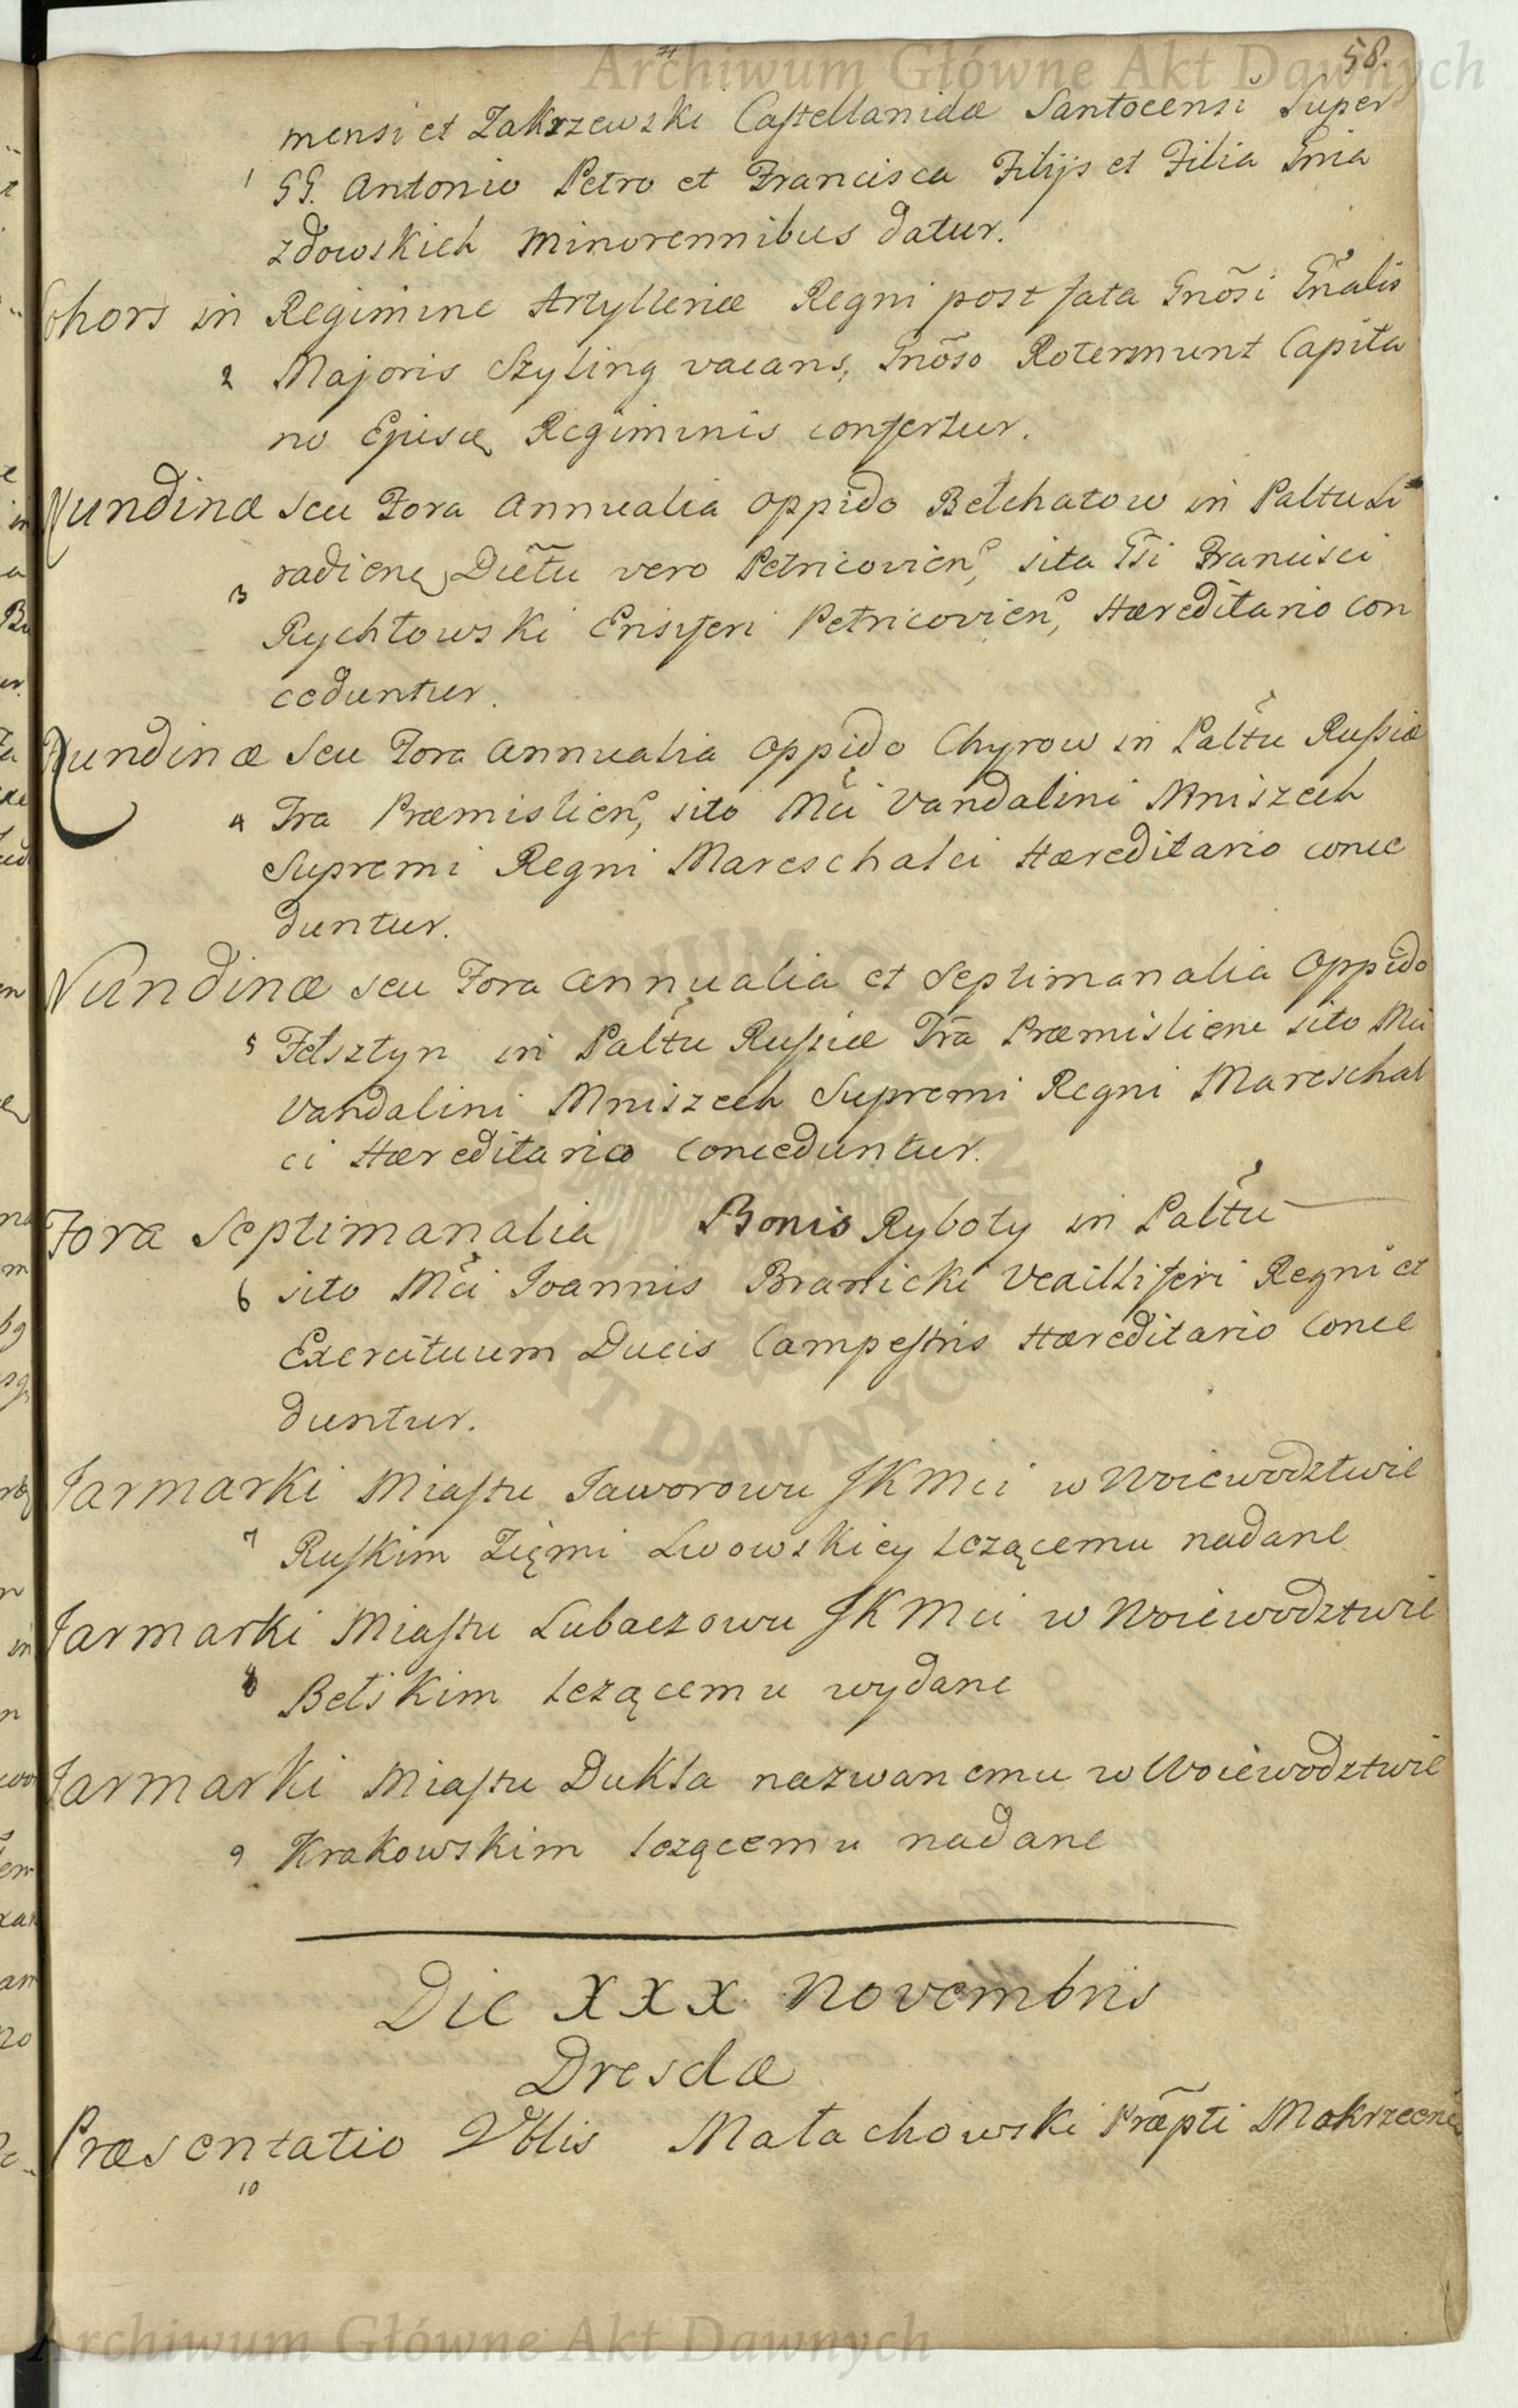 Archiwum Główne Akt Dawnych
58.
mensi et Zakrzewski Castellanidæ Santocensi Super
1 GG. Antonio Petro et Francisca Filijs et Filia Gnia
zdowskich Minorennibus datur.
Cohors in Regimine Artylleriæ Regni post fata Gnõsi Gñalis
2 Majoris Szyling vacans, Gnõso Rotermunt Capita
no Ejusđ Regiminis confertur.
Nundinæ seu Fora Annualia Oppido Bełchatow in Paltu Si
3 radieñ, Dũtu vero Petricovień, sita Gsi Francisci
Rychłowski Ensiferi Petricovień, Hæreditario con
ceduntur.
Nundinæ seu Fora Annualia Oppido Chyrow in Palt̃u Russiæ
4 Tra Præmislień, sito Mci Vandalini Mniszech
Supremi Regni Mareschalci Hæreditario conce
duntur.
Nundinæ seu Fora Annualia et Septimanalia Oppido
5 Felsztyn in Palt̃u Russiæ Trã Præmisliene sito Mci
Vandalini Mniszech Supremi Regni Mareschal
ci Hæreditario conceduntur.
Fora Septimanalia Bonis Ryboty in Palt̃u —
6 sito Mci Joannis Branicki Vexilliferi Regni et
Exercituum Ducis Campestris Hæreditario conce
duntur.
Jarmarki Miastu Jaworowu JKMci w Woiewodztwie
7 Ruskim Zięmi Lwowskiey leżącemu nadane
Jarmarki Miastu Lubaczowu JKMci w Woiewodztwie
8 Bełskim leżącemu wydane
Jarmarki Miastu Dukla nazwanemu w Woiewodztwie
9 Krakowskim leżącemu nadane
Die XXX Novembris
Dresdæ
Præsentatio Małachowski Præpti
10
Archiwum Główne Akt Dawnych